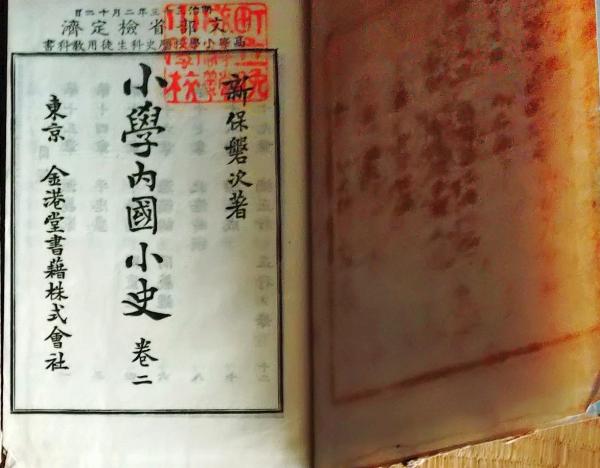 明治三十三年二月十二日
文部省檢定濟
高等小學校歷史科生徒用教科書
新保磐次著
小學內國小史 卷二
東京 金港堂書籍株式會社